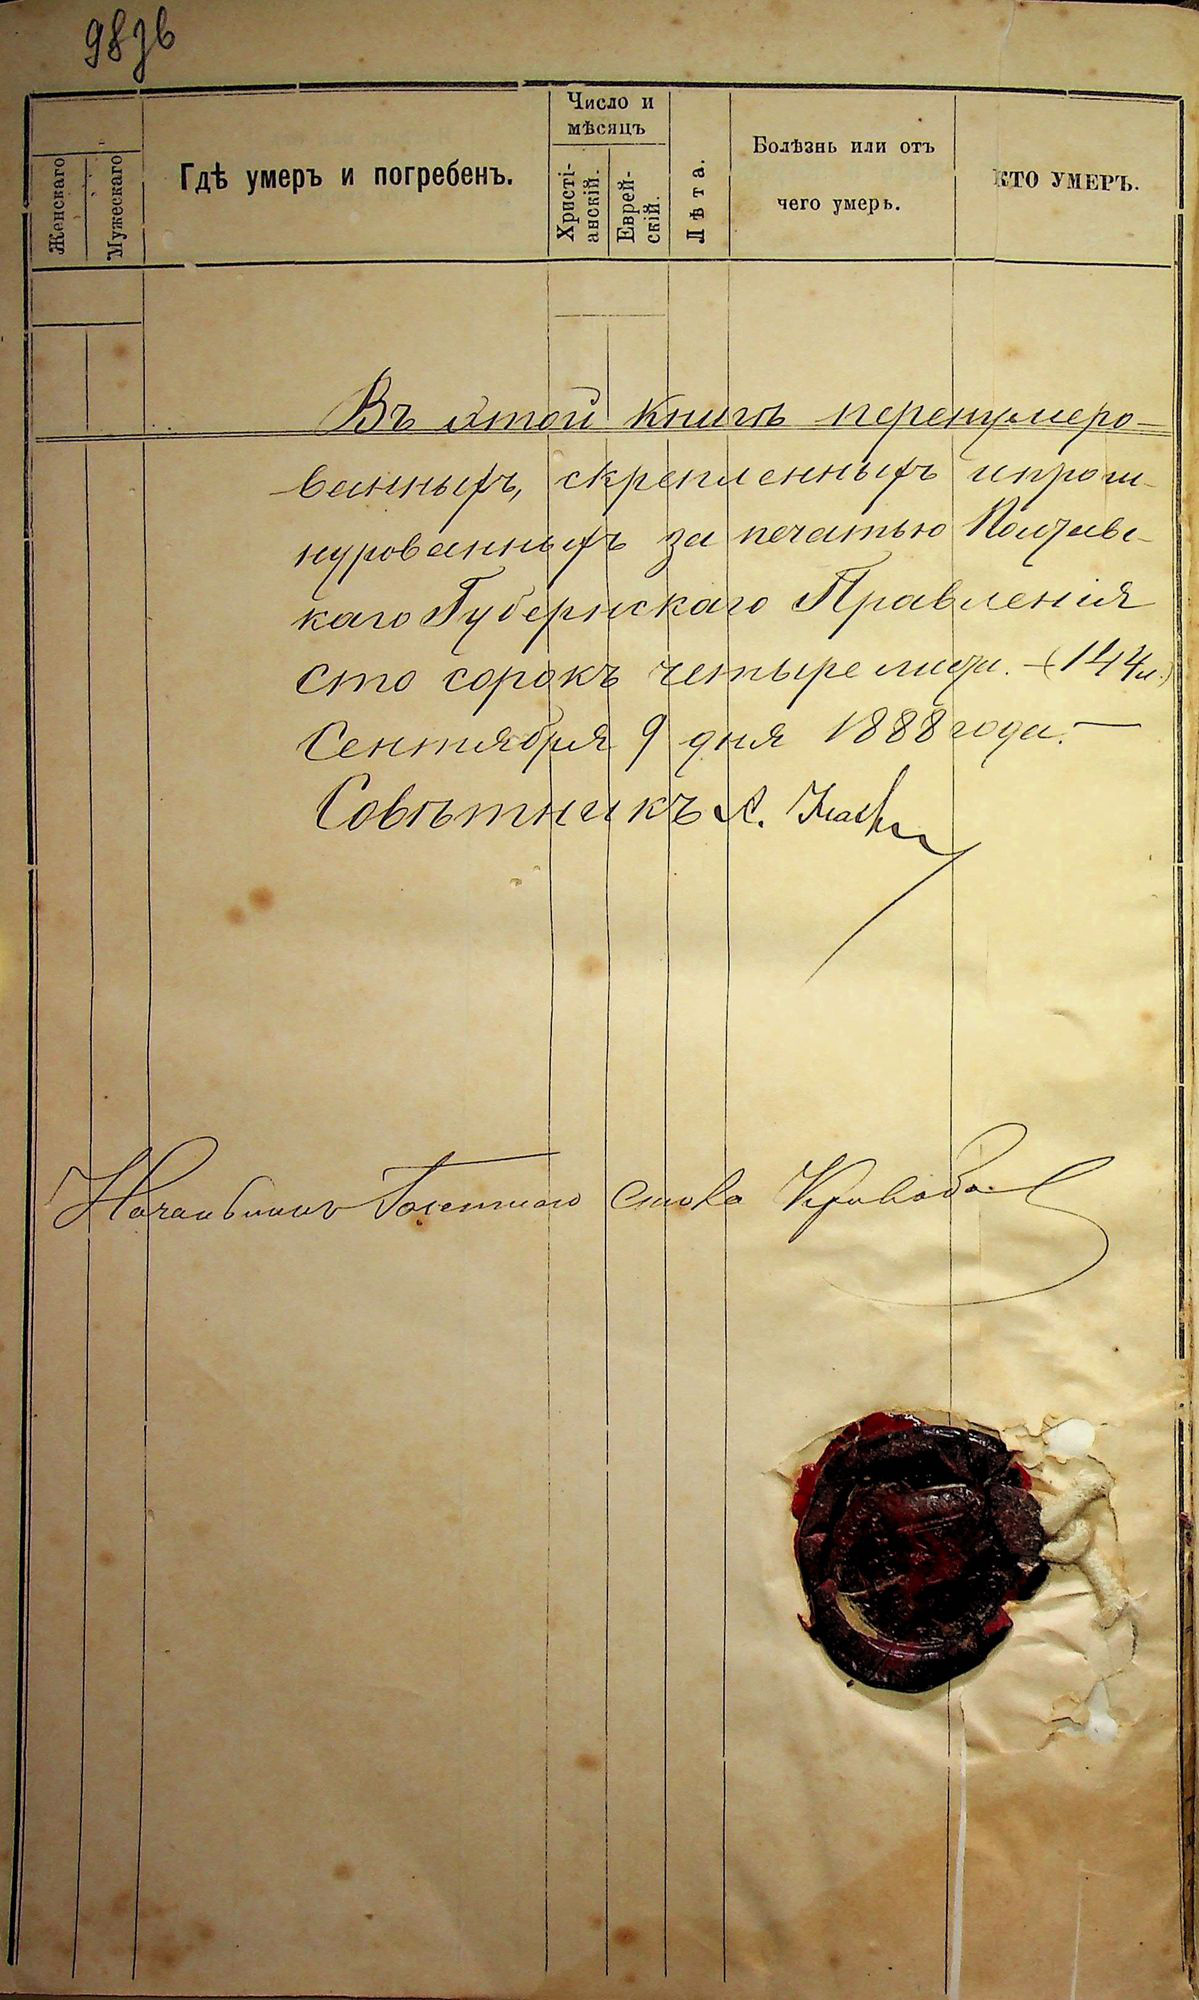 98зв
Женскаго
Мужескаго
Гдѣ умеръ и погребенъ.
Число и
мѣсяцъ
Христі-
анскій.
Еврей-
скій.
Лѣта.
Болѣзнь или отъ
чего умеръ.
КТО УМЕРЪ.
Въ этой книгѣ перенумеро-
ванныхъ, скрепленныхъ и прош-
нурованныхъ за печатью Полтавс-
каго Губернскаго Правленія
сто сорокъ четыре листа. (144 л.)
Сентября 9 дня 1888 года.
Совѣтникъ А.
Начальникъ Газетнаго Стола